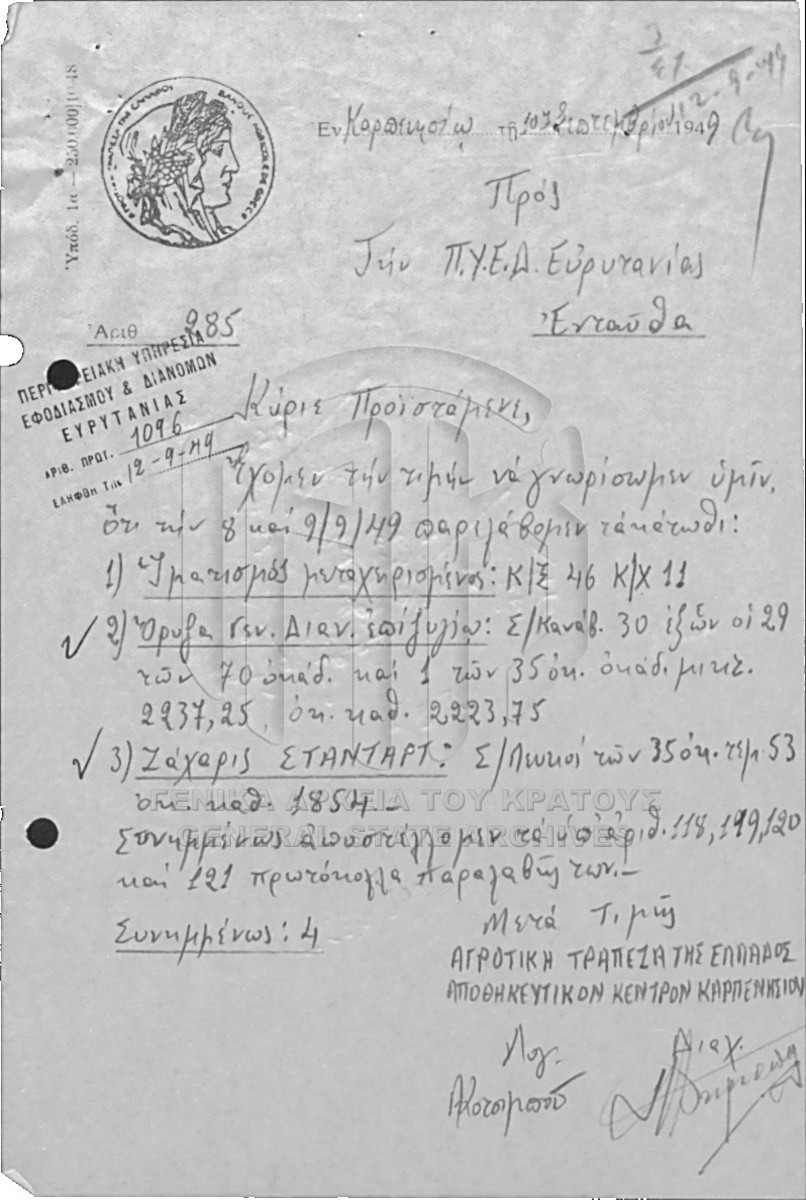 Ὑπόδ. 1α — 250.000|10-48
Ἐν Καρπενησίῳ τῇ 10ῃ Σεπτεμβρίου 1949
12-9-49
Πρός
Τήν Π.Υ.Ε.Δ. Εὐρυτανίας
Ἐνταῦθα
Ἀριθ 285
ΠΕΡΙΦΕΡΕΙΑΚΗ ΥΠΗΡΕΣΙΑ
ΕΦΟΔΙΑΣΜΟΥ & ΔΙΑΝΟΜΩΝ
ΕΥΡΥΤΑΝΙΑΣ
ΑΡΙΘ. ΠΡΩΤ. 1096
ΕΛΗΦΘΗ Τῌ 12-9-49
Κύριε Προϊστάμενε,
Ἔχομεν τήν τιμήν νά γνωρίσωμεν ὑμῖν,
ὅτι τήν 8 καί 9/9/49 παρελάβομεν τά κάτωθι:
1) Ἱματισμός μεταχειρισμένος: Κ/Ξ 46 Κ/Χ 11
2) Ὄρυζα γεν. Διαν. ἐπίζυγίῳ: Σ/Κανάβ. 30 ἐξ ὧν οἱ 29
τῶν 70 ὀκάδ. καί 1 τῶν 35 ὀκ. ὀκάδ. μικτ.
2237,25, ὀκ. καθ. 2223,75
3) Ζάχαρις ΣΤΑΝΤΑΡΤ: Σ/Λευκοί τῶν 35 ὀκ. τεμ. 53
ὀκ. καθ. 1854 –
ΓΕΝΙΚΑ ΑΡΧΕΙΑ ΤΟΥ ΚΡΑΤΟΥΣ
GENERAL STATE ARCHIVES
Συνημμένως ἀποστέλλομεν τά ὑπ' ἀριθ. 118, 119, 120
καί 121 πρωτόκολλα παραλαβῆς των.–
Συνημμένως: 4
Μετά Τιμῆς
ΑΓΡΟΤΙΚΗ ΤΡΑΠΕΖΑ ΤΗΣ ΕΛΛΑΔΟΣ
ΑΠΟΘΗΚΕΥΤΙΚΟΝ ΚΕΝΤΡΟΝ ΚΑΡΠΕΝΗΣΙΟΥ
Λογ. Διαχ.